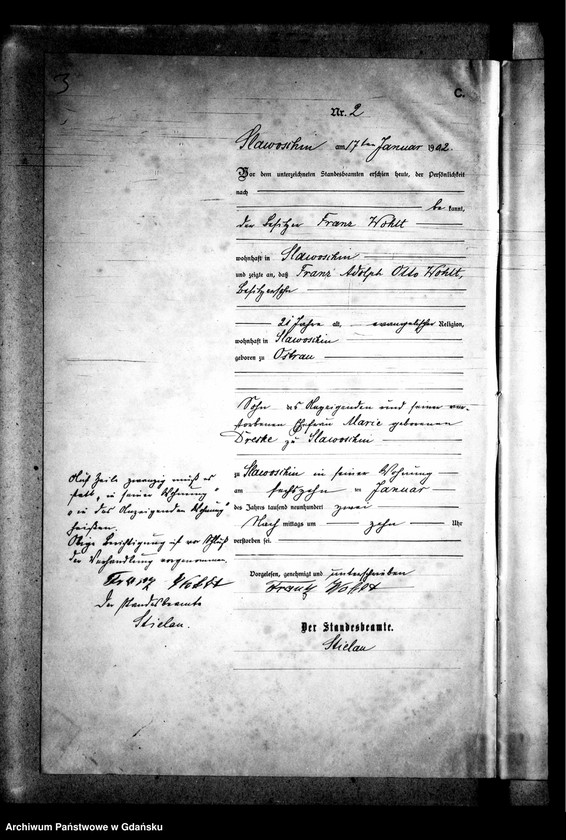 3
C.
Nr. 2
Slawoschin am 17ten Januar 1902.
Vor dem unterzeichneten Standesbeamten erschien heute, der Persönlichkeit
nach
be kannt,
der Besitzer Franz Wohlt
wohnhaft in Slawoschin
und zeigte an, daß Franz Adolph Otto Wohlt,
Besitzersohn
21 Jahre alt, evangelischer Religion,
wohnhaft in Slawoschin
geboren zu Ostrau
Sohn des Anzeigenden und seiner ver-
storbenen Ehefrau Marie geborenen
Dreske zu Slawoschin
zu Slawoschin in seiner Wohnung
am sechszehn ten Januar
des Jahres tausend neunhundert zwei
Nach mittags um zehn Uhr
verstorben sei.
Vorgelesen, genehmigt und unterschrieben
Frantz Wohlt
Der Standesbeamte.
Stielau
Auf Zeile zwanzig muß es
statt „in seiner Wohnung"
„in des Anzeigenden Wohnung"
heißen.
Obige Berichtigung ist vor Schluß
der Verhandlung vorgenommen.
Frantz Wohlt
Der Standesbeamte
Stielau.
Archiwum Państwowe w Gdańsku